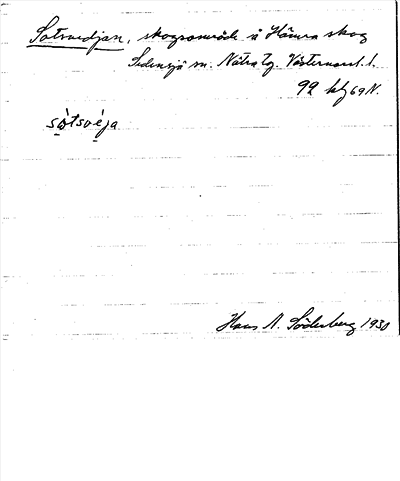 Sotsvedjan, skogsområde å Hämra skog
Sidensjö sn. Nätra tg. Västernorrl. l.
99 kf 69 N.
sòtsvéja
Hans N. Söderberg 1930